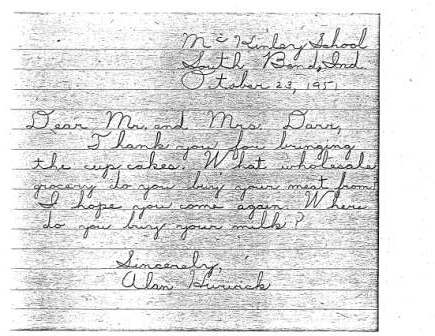 Mc Kinley School
South Bend, Ind.
October 23, 1951
Dear Mr. and Mrs. Darr,
Thank you for bringing
the cup cakes. What wholesale
grocery do you buy your meat from?
I hope you come again. Where
do you buy your milk?
Sincerely,
Alan